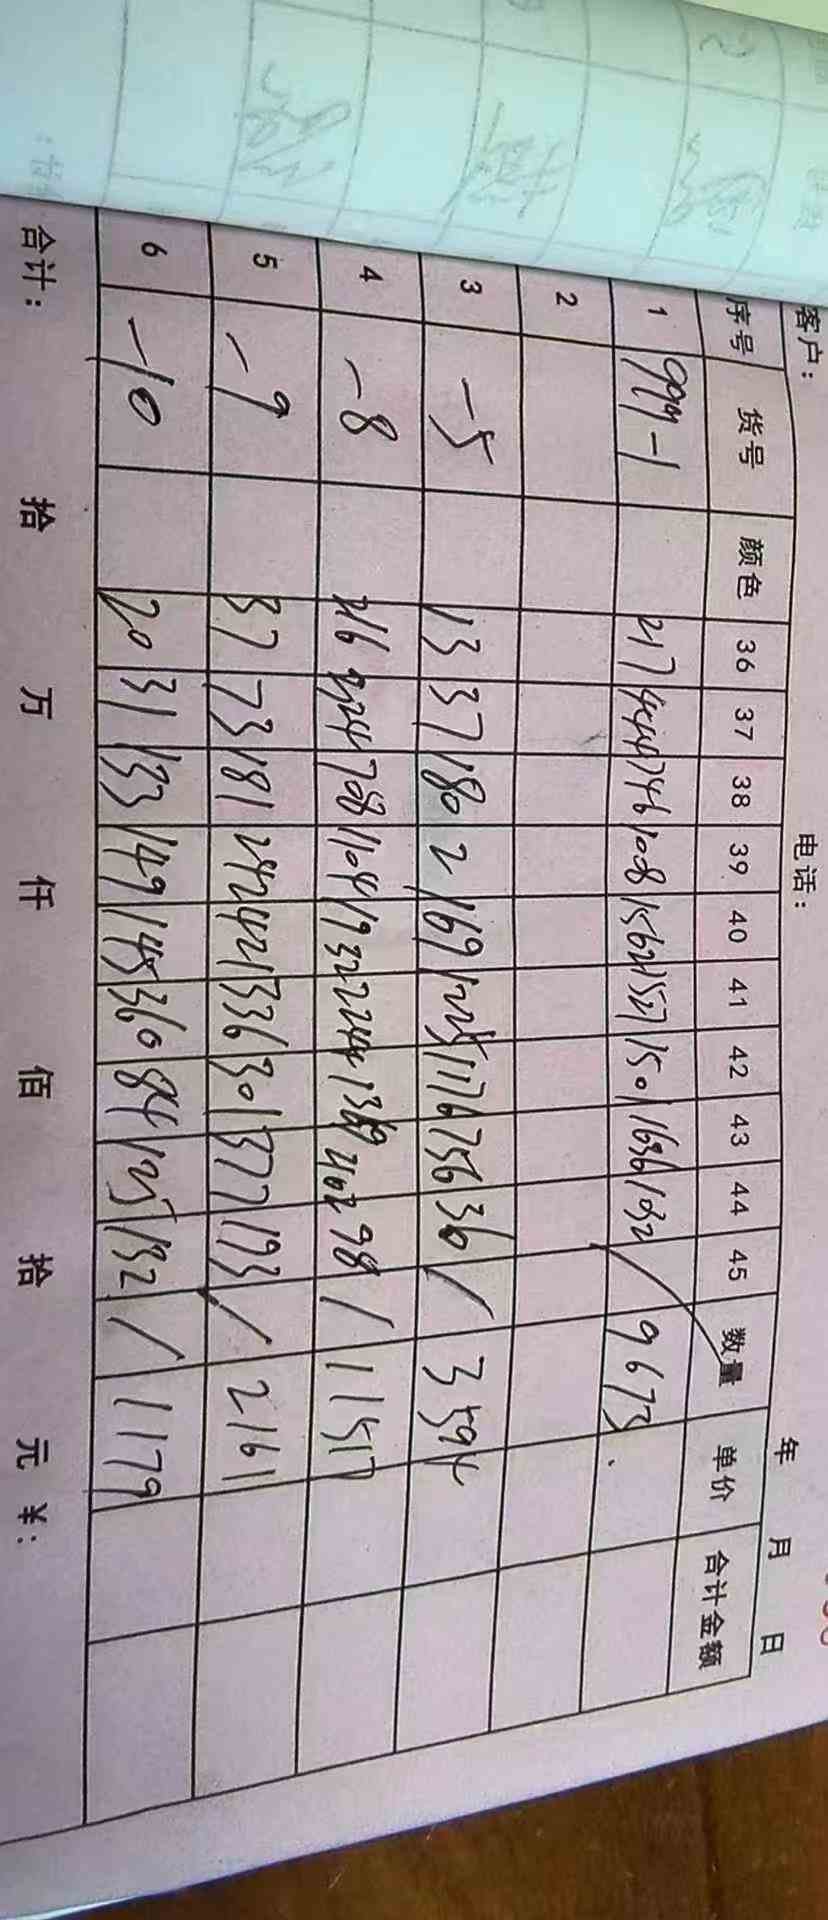 客户： 电话： 年 月 日
序号 货号 颜色 36 37 38 39 40 41 42 43 44 45 数量 单价 合计金额
1 -1 217 746 108 1562 1527 1501 1636 1032 / 9673
2
3 -5 13 37 180 2 169 1225 1176 756 36 / 3594
4 -8 216 924 708 1104 1932 2244 1369 98 / 11517
5 -9 37 73 181 242 421 336 301 377 193 / 2161
6 -10 20 31 133 149 145 360 84 125 132 / 1179
合计： 拾 万 仟 佰 拾 元 ¥: